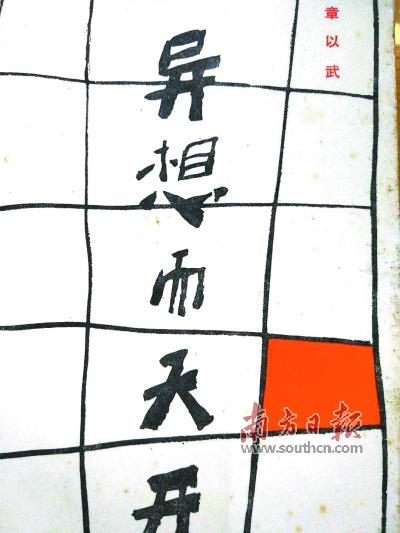 章以武
异想而天开
南方日报
www.southcn.com